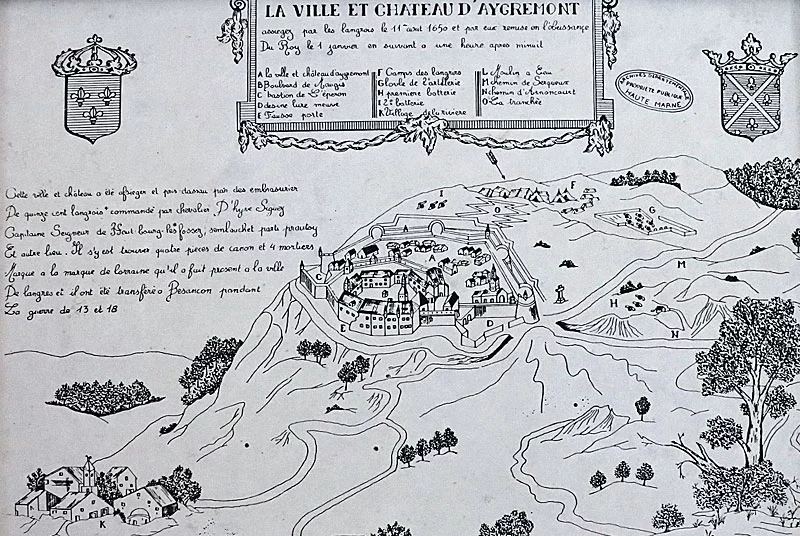 LA VILLE ET CHATEAU D'AYGREMONT
assiegez par les langrois le 11 aout 1650 et par eux remise en l'obeissance
Du Roy le 1 janvier en suivant a une heure apres minuit
A la ville et château daygremont
B Boulvard de Maugis
C bastion de L'éperon
D desine lure neuve
E Fausse porte
F Camps des langrois
G loule de l'artillerie
H premiere batterie
I 2e batterie
K Village de la riviere
L Moulin a Eau
M chemin de Serqueux
N chemin d'Arnoncourt
O La tranchée
ARCHIVES DEPARTEMENTALES
PROPRIÉTÉ PUBLIQUE
HAUTE MARNE
Cette ville et château a été assieger et pris dassau par des embrasurier
De quinze cent langrois commandé par chevalier D'hyre Siguey
Capitaine Seigneur de Haut bourg. les fossez, somblouchet parti
Et autre lieu. Il s'y est trouver quatre pieces de canon et 4 mortiers
Marque a la marque de lorraine qu'il a fait present a la ville
De langres et il ont été transféré a Besancon pendant
La guerre de 13 et 18
I
F
O
G
A
A
C
M
H
E
D
N
K